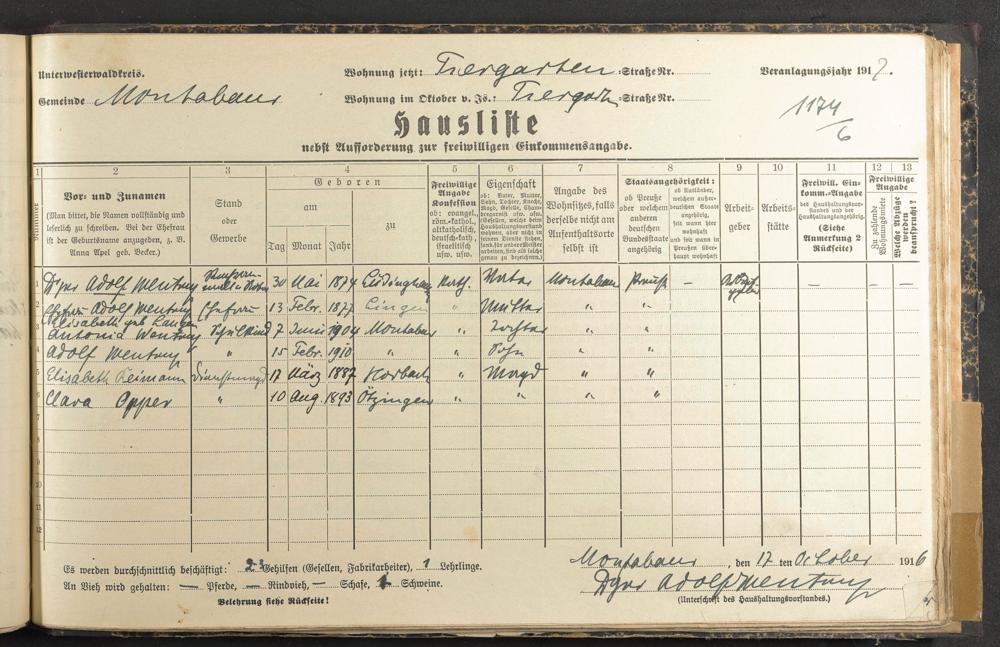 Unterwesterwaldkreis. Wohnung jetzt: Tiergarten-Straße Nr. Veranlagungsjahr 1917.
Gemeinde Montabaur Wohnung im Oktober v. Js.: Tiergarten-Straße Nr. 1174/6
Hausliste
nebst Aufforderung zur freiwilligen Einkommensangabe.
1 2 3 4 5 6 7 8 9 10 11 12 13
Nummer
Vor- und Zunamen
(Man bittet, die Namen vollständig und
leserlich zu schreiben. Bei der Ehefrau
ist der Geburtsname anzugeben, z. B.
Anna Apel geb. Becker.)
Stand
oder
Gewerbe
Geboren
am
zu
Tag Monat Jahr
Freiwillige
Angabe
Konfession
ob: evangel.,
röm.-kathol.,
altkatholisch,
deutsch-kath.,
israelitisch
usw. usw.
Eigenschaft
ob: Vater, Mutter,
Sohn, Tochter, Knecht,
Magd, Geselle,
Angabe des
Wohnsitzes, falls
derselbe nicht am
Aufenthaltsorte
selbst ist
Staatsangehörigkeit:
ob Preuße
oder welchem
anderen
deutschen
Bundesstaate
angehörig
ob Ausländer,
welchem außer-
deutschen Staate
angehörig,
seit wann hier
wohnhaft
und seit wann in
Preußen über-
haupt wohnhaft
Arbeit-
geber
Arbeits-
stätte
Freiwill. Ein-
komm.-Angabe
des Haushaltungsvor-
standes und der
Haushaltungsangehörig.
(Siehe
Anmerkung 2
Rückseite)
Freiwillige
Angabe
Zu zahlende
Wohnungsmiete
Welche Abzüge
werden
beansprucht?
1 Adolf 30 Mai 1874 Lüdinghausen Kath. Vater Montabaur Preuße — — — —
2 Ehefrau Adolf Ehefrau 13 Febr. 1877 Lingen " Mutter " "
Elisabeth geb.
3 Antonia Schulkind 7 Juni 1904 Montabaur " Tochter " "
4 Adolf " 15 Febr. 1910 " " Sohn " "
5 Elisabeth Reimann Dienstmagd 17 März 1887 Korbach " Magd " "
6 Clara Opper " 10 Aug. 1893 Ötzingen " " " "
7
8
9
10
11
12
Es werden durchschnittlich beschäftigt: Gehilfen (Gesellen, Fabrikarbeiter), 1 Lehrlinge.
Montabaur, den 17 ten Oktober 1916
An Vieh wird gehalten: — Pferde, — Rindvieh, — Schafe, Schweine.
Adolf
Belehrung siehe Rückseite!
(Unterschrift des Haushaltungsvorstandes.)